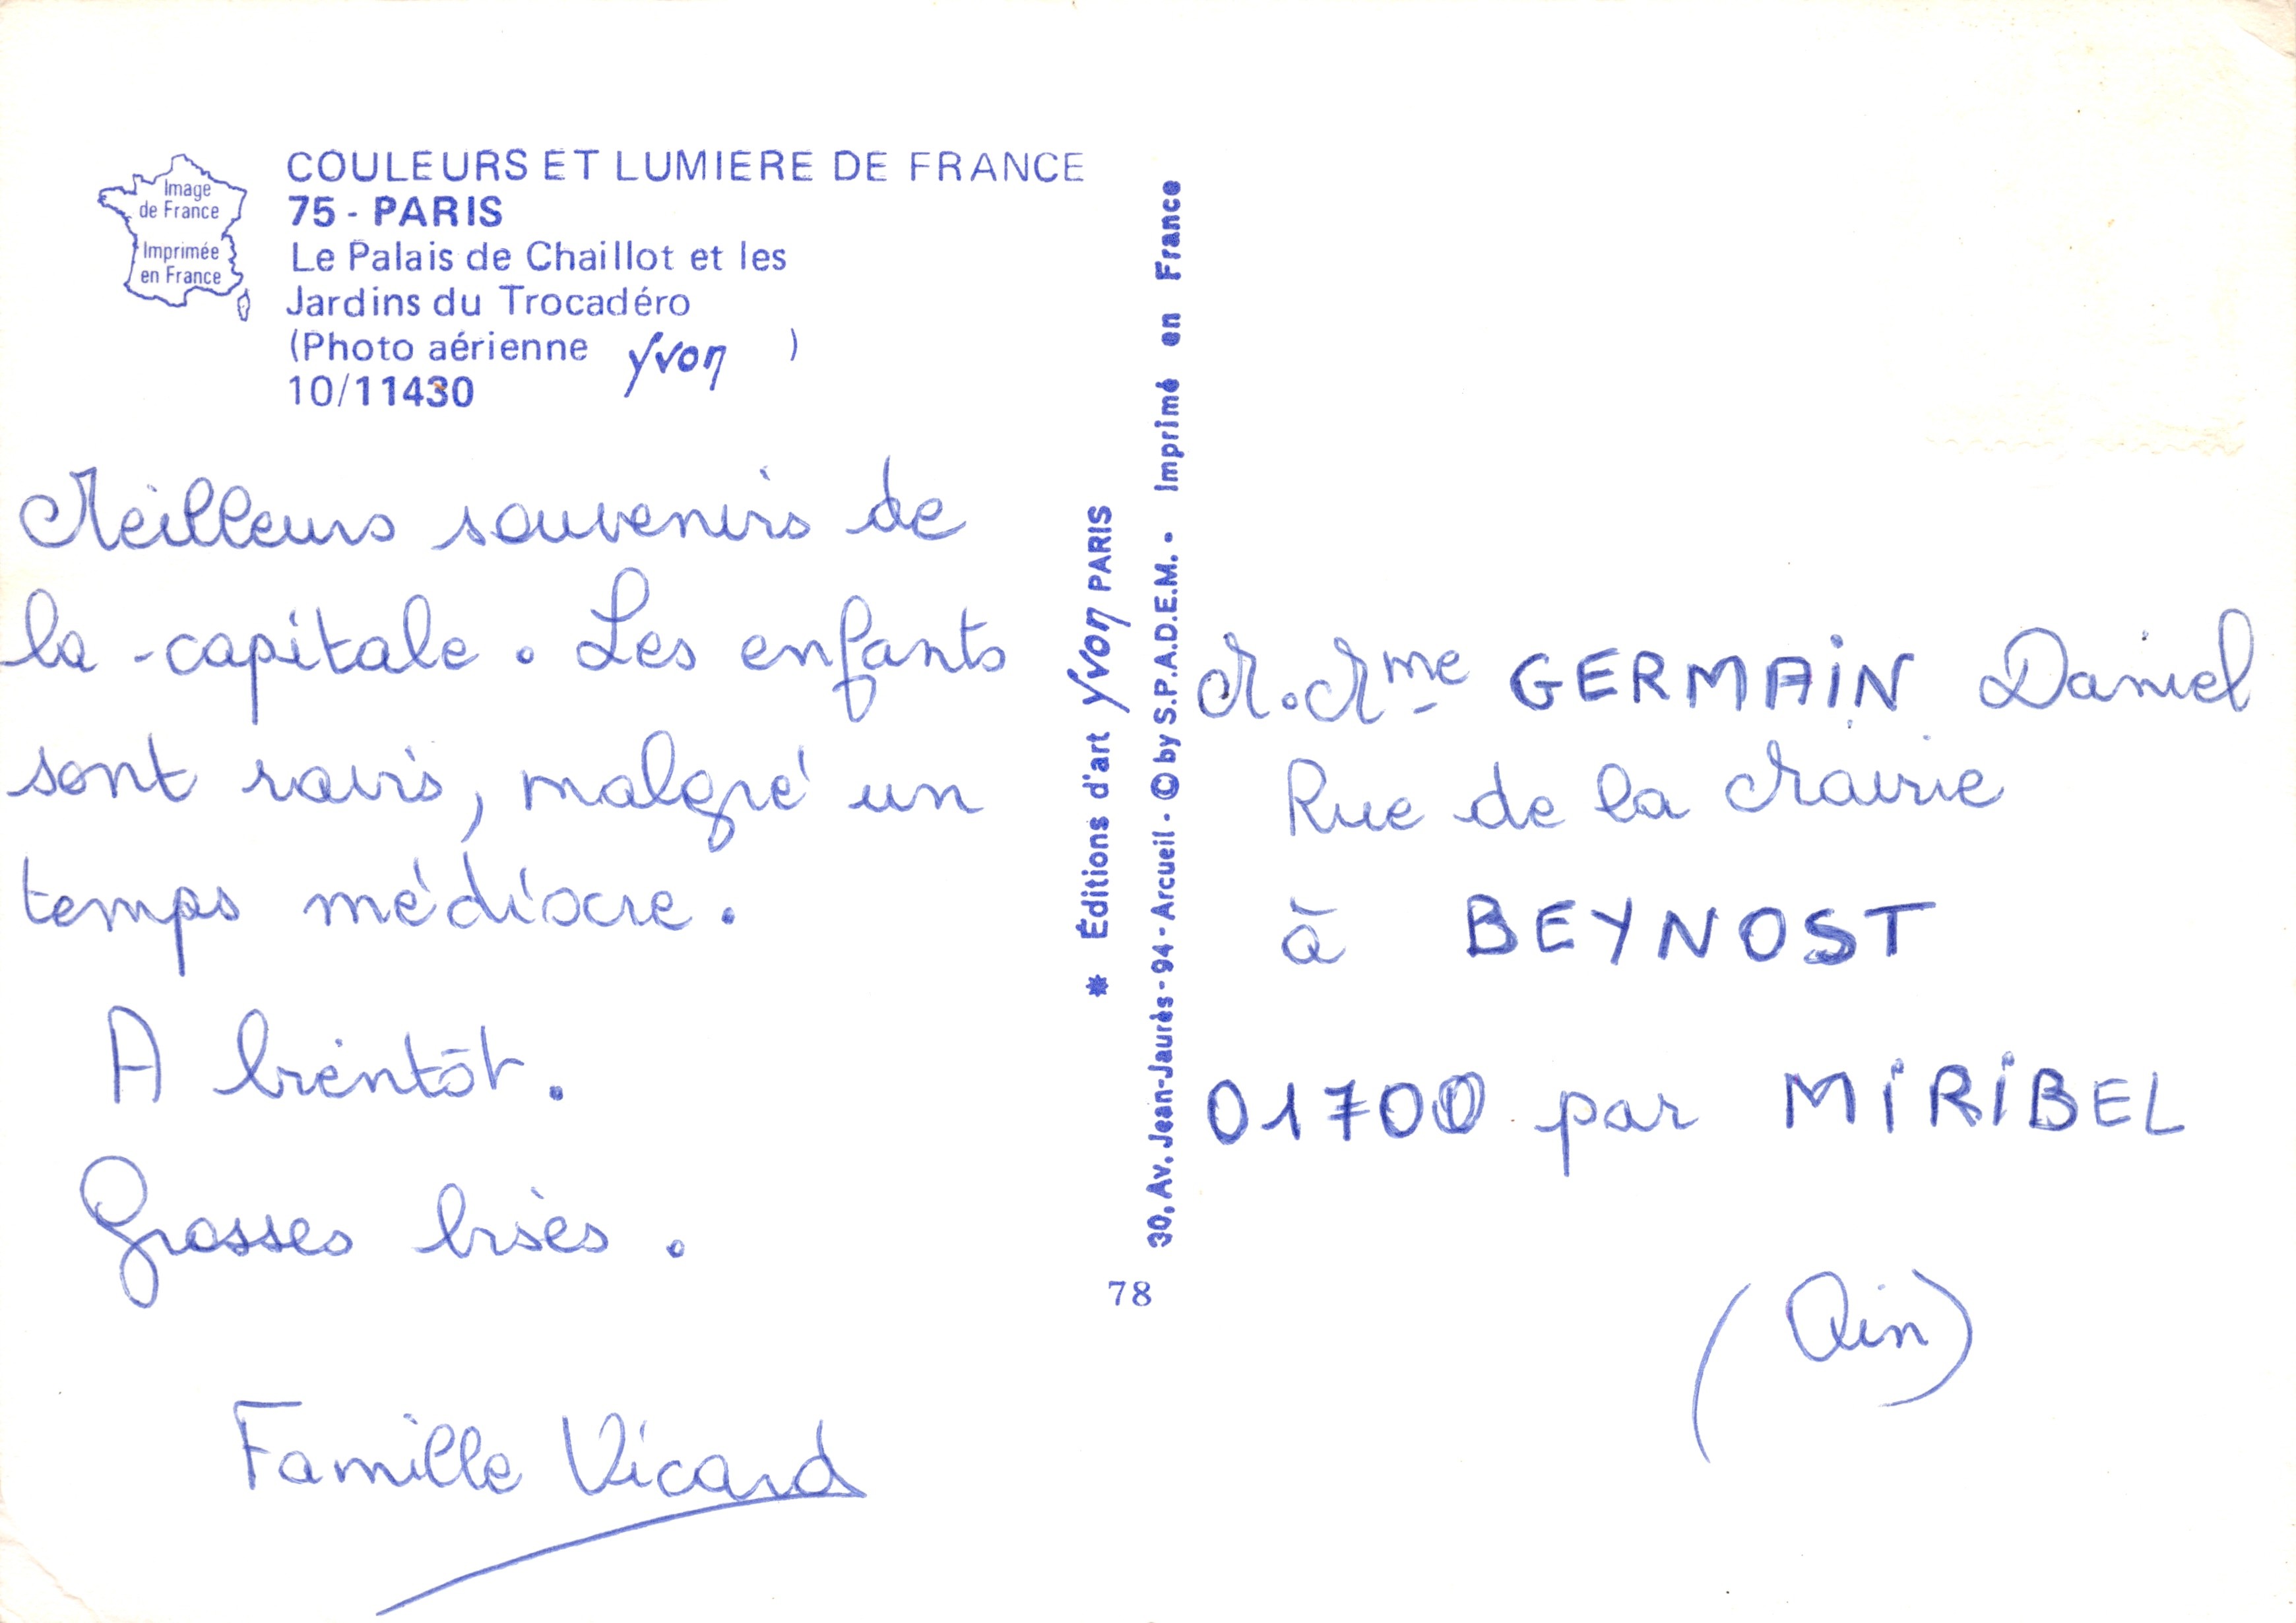 Image
de France
Imprimée
en France
COULEURS ET LUMIERE DE FRANCE
75 - PARIS
Le Palais de Chaillot et les
Jardins du Trocadéro
(Photo aérienne yvon )
10/11430
Meilleurs souvenirs de
la capitale. Les enfants
sont ravis, malgré un
temps médiocre.
A bientôt.
Grosses bises.
Famille Vicard
* Éditions d'art yvon PARIS
30, Av. Jean-Jaurès - 94 - Arcueil - © by S.P.A.D.E.M. - Imprimé en France
78
M. Mme GERMAIN Daniel
Rue de la Mairie
à BEYNOST
01700 par MIRIBEL
(Ain)